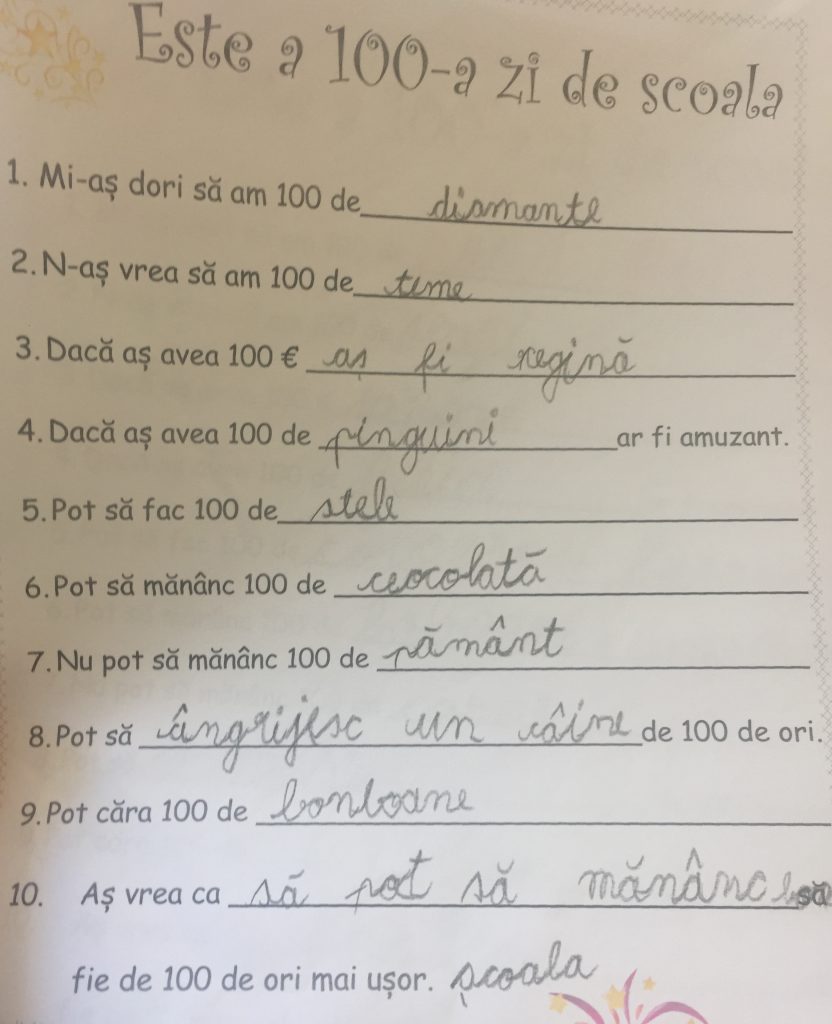 Este a 100-a zi de scoala
1. Mi-aș dori să am 100 de diamante
2. N-aș vrea să am 100 de teme
3. Dacă aș avea 100 € aș fi regină
4. Dacă aș avea 100 de pinguini ar fi amuzant.
5. Pot să fac 100 de stele
6. Pot să mănânc 100 de ceocolată
7. Nu pot să mănânc 100 de pământ
8. Pot să ângrijesc un câine de 100 de ori.
9. Pot căra 100 de bonboane
10. Aș vrea ca să pot să mănânc să
fie de 100 de ori mai ușor. școala